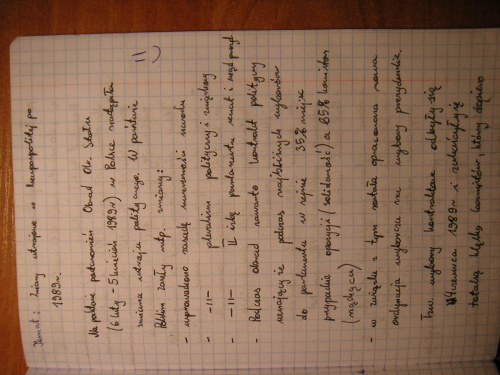 Temat: Zmiany ustrojowe w Rzeczpospolitej po
1989r.
Na podstawie postanowień Obrad Okr. Stołu
(6 luty - 5 kwiecień 1989r) w Polsce nastąpiła
zmiana ustroju politycznego. W państwie
Polskim zaszły nstp. zmiany:
- wprowadzono zasadę suwerenności narodu
- -||- pluralizm polityczny i związkowy
- -||- II izbę parlamentu senat i urząd prezyd
- Podczas obrad zawarto kontrakt polityczny
że podczas najbliższych wyborów
do parlamentu w sejmie 35% miejsc
przypadnie opozycji (solidarność) a 65% komitom
(rządzący)
- w związku z tym została opracowana nowa
ordynacja wyborcza na wybory prezydenckie
Tzw. wybory kontraktowe odbyły się
czerwca 1989r i zakończyły się
totalną klęską komunistów, którzy